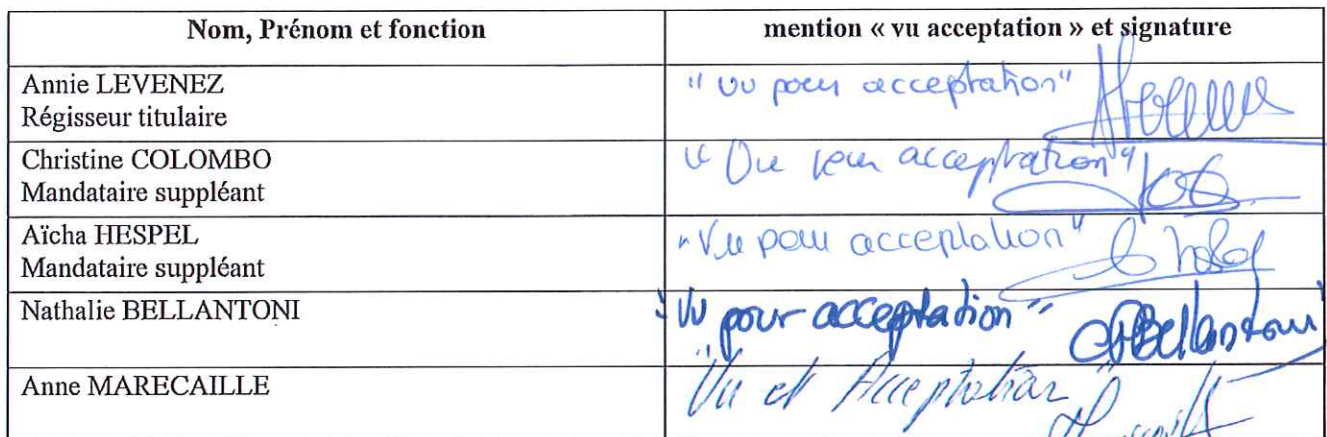 Nom, Prénom et fonction
mention « vu acceptation » et signature
Annie LEVENEZ
Régisseur titulaire
"Vu pour acceptation"
Christine COLOMBO
Mandataire suppléant
"Vu pour acceptation"
Aïcha HESPEL
Mandataire suppléant
"Vu pour acceptation"
Nathalie BELLANTONI
"Vu pour acceptation" Bellantoni
Anne MARECAILLE
"Vu et Acceptation"